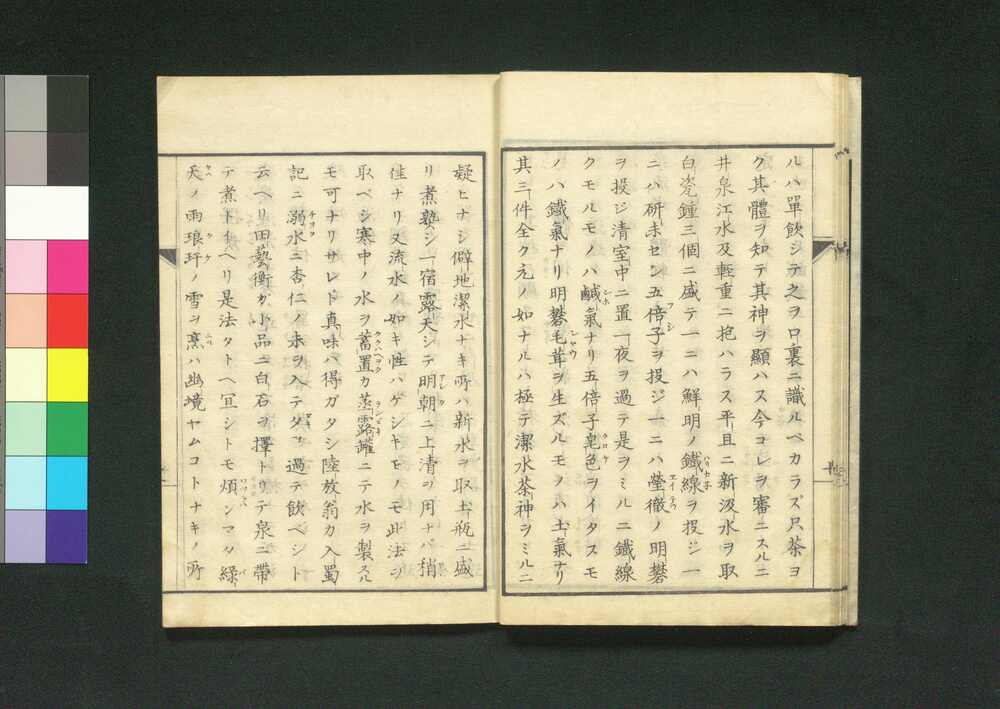 ルハ單飲シテ之ヲ口裏ニ識ルベカラズ只茶ヨ
ク其體ヲ知テ其神ヲ顯ハス今コレヲ審ニスルニ
井泉江水及輕重ニ抱ハラス平旦ニ新汲水ヲ取
白瓷鍾三個ニ盛テ一ニハ鮮明ノ鐵線ヲ投ジ一
ニハ研末セン五倍子ヲ投ジ一ニハ瑩徹ノ明礬
ヲ投ジ清室中ニ置一夜ヲ過テ是ヲミルニ鐵線
クモルモノハ鹹氣ナリ五倍子皂色ヲイタスモ
ノハ鐵氣ナリ明礬毛茸ヲ生ズルモノハ土氣ナリ
其三件全ク元ノ如ナルハ極テ潔水茶神ヲミルニ
疑ヒナシ僻地潔水ナキ所ハ新水ヲ取土瓶ニ盛
リ煮熟シ一宿露天シテ明朝ニ上清ヲ用ナバ稍
佳ナリ又流水ノ如キ性ハゲシキモノモ此法ヲ
取ベシ寒中ノ水ヲ蓄置カ蒸露罐ニテ水ヲ製スル
モ可ナリサレド真味ハ得ガタシ陸放翁カ入蜀
記ニ溺水ニ杏仁ノ末ヲ入テタヾ過テ飲ベシト
云ヘリ田藝衡ガ小品ニ白石ヲ擇トリテ泉ニ帶
テ煮トイヘリ是法タトヘ冝シトモ煩ンマタ綠
天ノ雨琅玕ノ雪ヲ烹ハ幽境ヤムコトナキノ所